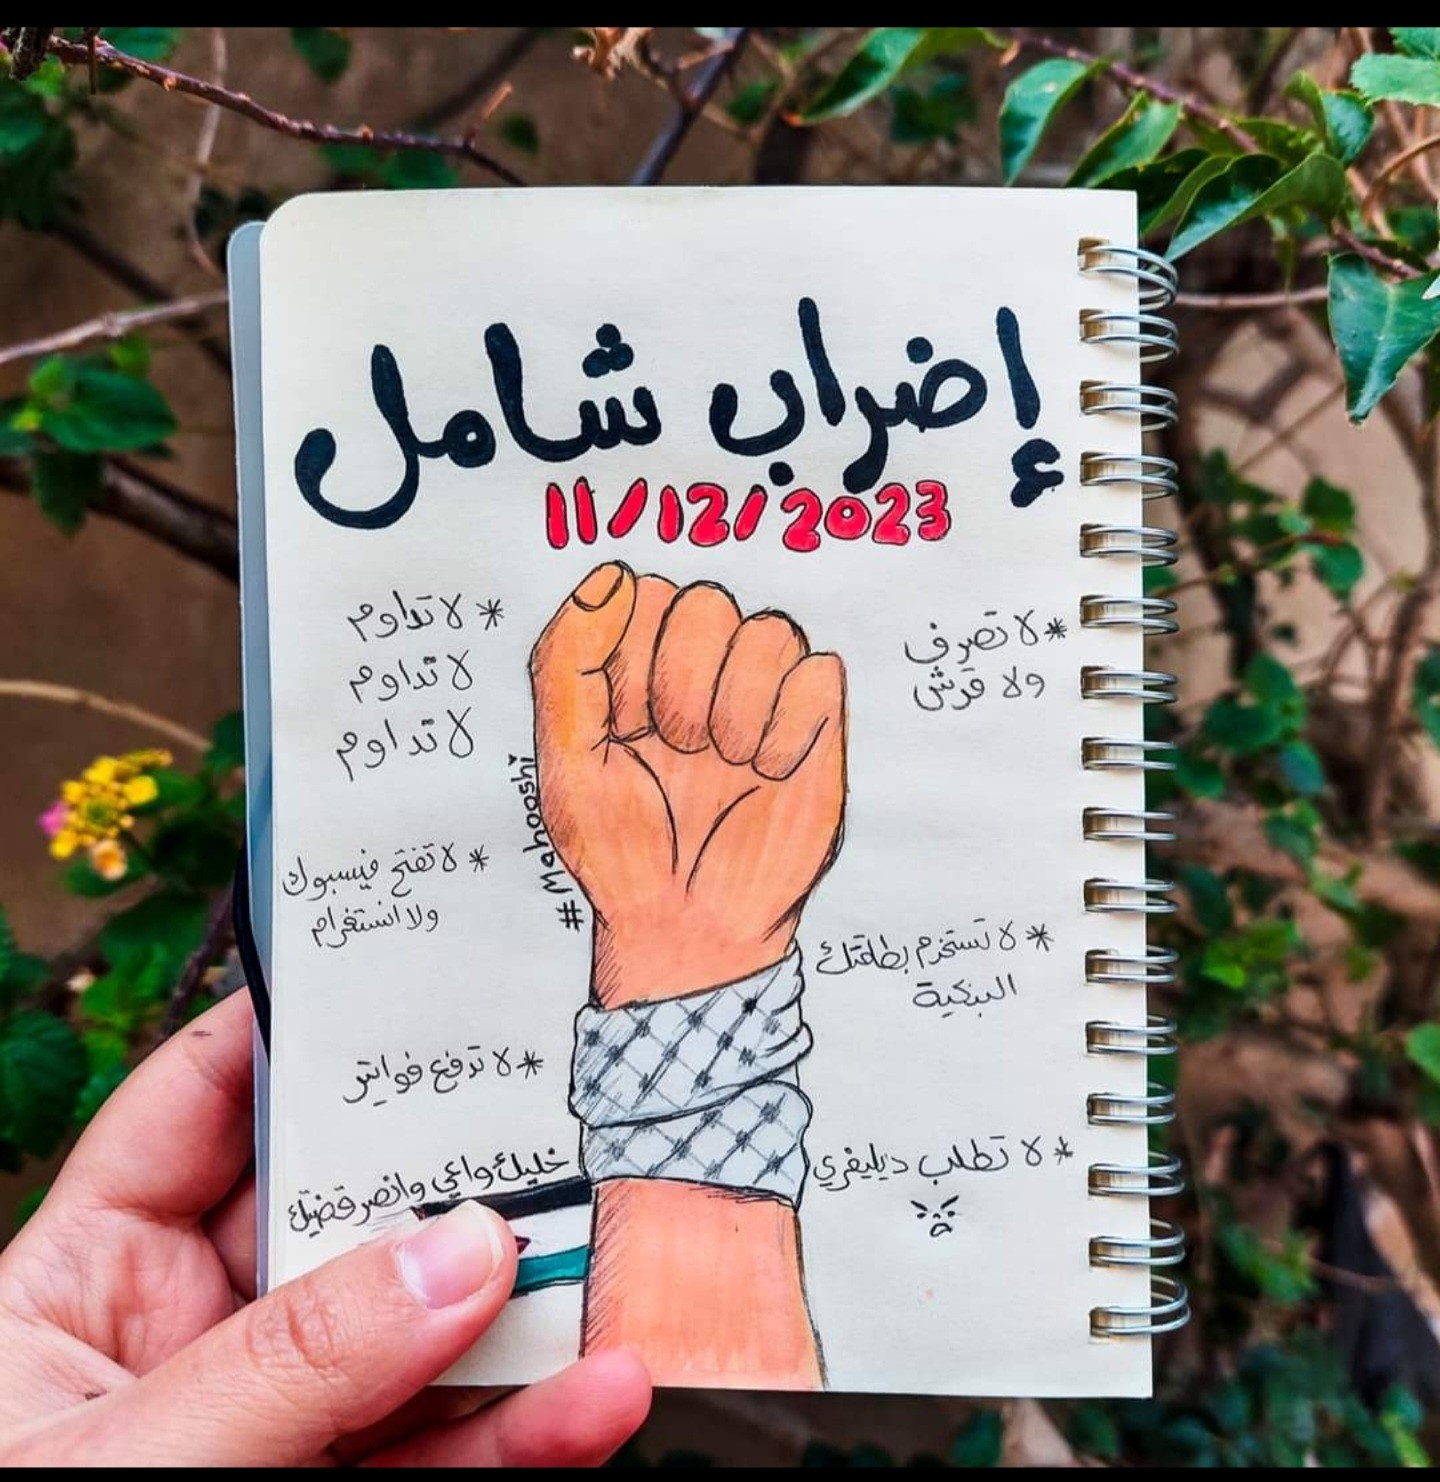 إضراب شامل
11/12/2023
* لا تصرف
ولا قرش
* لا تداوم
لا تداوم
لا تداوم
#Mahooshi
* لا تفتح فيسبوك
ولا انستغرام
* لا تستخدم بطاقتك
البنكية
* لا تدفع فواتير
* لا تطلب ديليفري
خليك واعي وانصر قضيتك